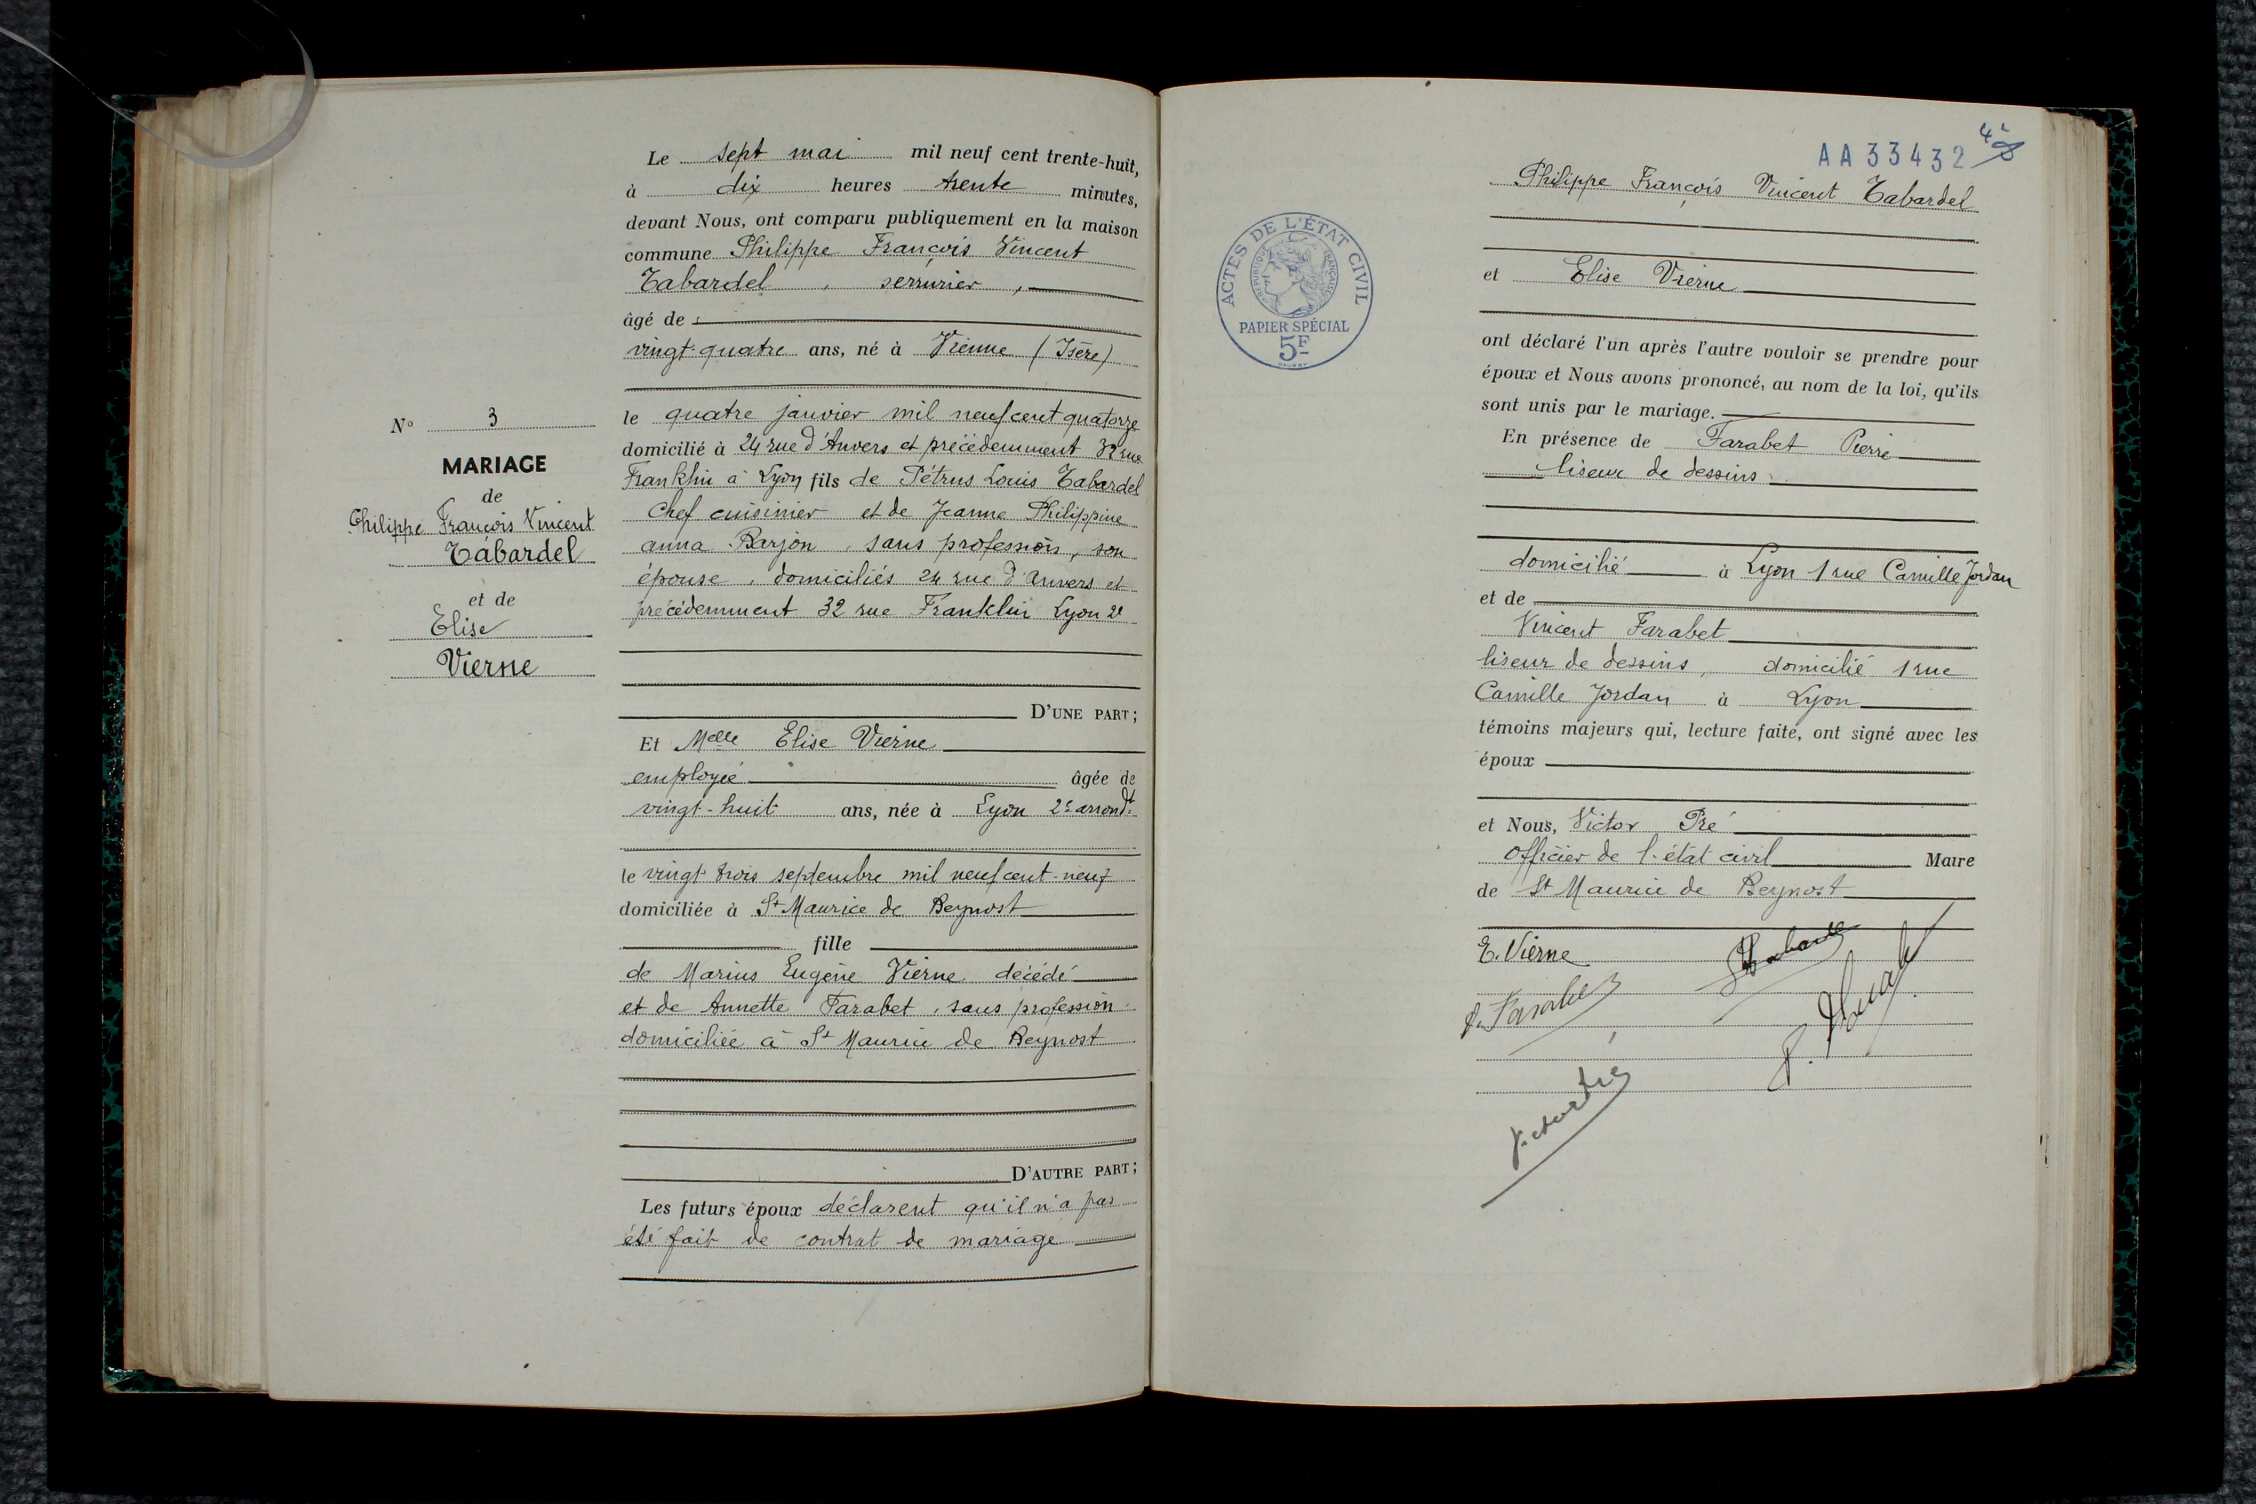 Le sept mai mil neuf cent trente-huit,
à dix heures trente minutes,
devant Nous, ont comparu publiquement en la maison
commune Philippe François Vincent
Tabardel, serrurier,
âgé de
vingt-quatre ans, né à Vienne (Isère)
le quatre janvier mil neuf cent quatorze
domicilié à 24 rue d'Anvers et précédemment 32 rue
Franklin à Lyon fils de Pétrus Louis Tabardel
Chef cuisinier et de Jeanne Philippine
anna Barjon, sans profession, son
épouse, domiciliés 24 rue d'Anvers et
précédemment 32 rue Franklin Lyon 2e
D'UNE PART;
Et Melle Elise Vierne
employée âgée de
vingt-huit ans, née à Lyon 2e arrondt
le vingt trois septembre mil neuf cent-neuf
domiciliée à St Maurice de Beynost
fille
de Marius Eugène Vierne décédé
et de Annette Farabet, sans profession
domiciliée à St Maurice de Beynost
D'AUTRE PART;
Les futurs époux déclarent qu'il n'a pas
été fait de contrat de mariage
N° 3
MARIAGE
de
Philippe François Vincent
Tabardel
et de
Elise
Vierne
AA 33432
ACTES DE L'ÉTAT CIVIL
RÉPUBLIQUE FRANÇAISE
PAPIER SPÉCIAL
5F
Philippe François Vincent Tabardel
et Elise Vierne
ont déclaré l'un après l'autre vouloir se prendre pour
époux et Nous avons prononcé, au nom de la loi, qu'ils
sont unis par le mariage.
En présence de Farabet Pierre
liseur de dessins
domicilié à Lyon 1 rue Camille Jordan
et de
Vincent Farabet
liseur de dessins, domicilié 1 rue
Camille Jordan à Lyon
témoins majeurs qui, lecture faite, ont signé avec les
époux
et Nous, Victor Pré
Officier de l'état civil Maire
de St Maurice de Beynost
E. Vierne
Farabet
Victor Pré